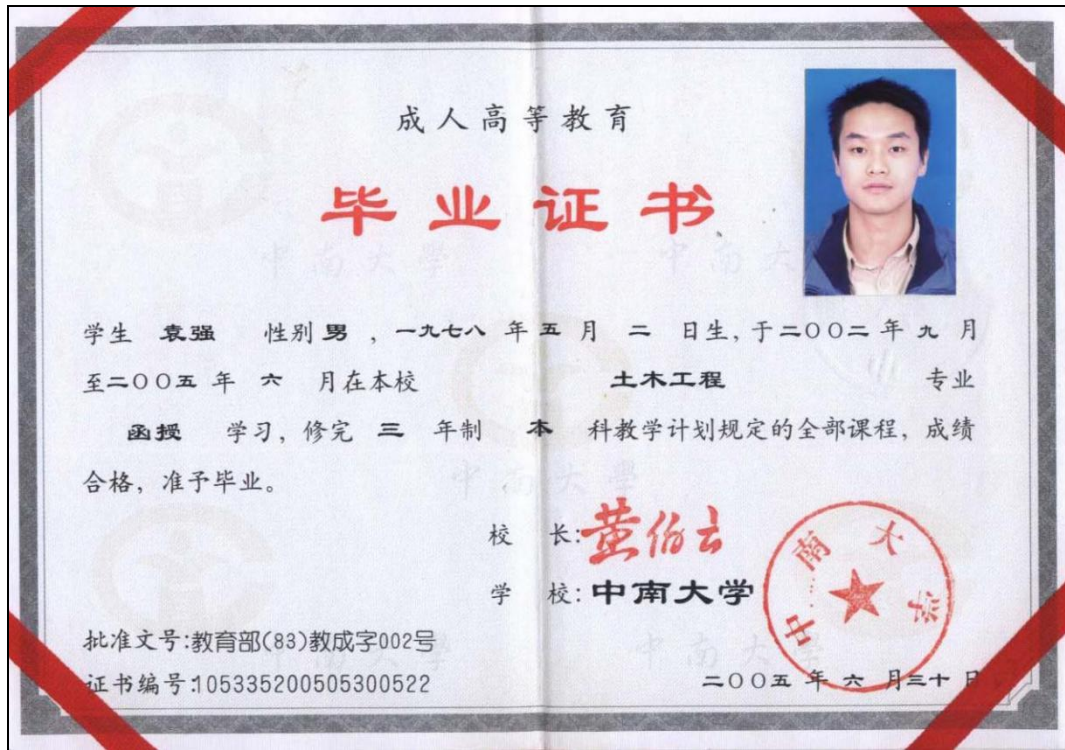 成人高等教育
毕业证书
学生 袁强 性别 男 , 一九七八 年 五 月 二 日生, 于二〇〇二 年 九 月
至二〇〇五 年 六 月在本校 土木工程 专业
函授 学习, 修完 三 年制 本 科教学计划规定的全部课程, 成绩
合格, 准予毕业。
校 长: 黄伯云
学 校: 中南大学
中南大学
批准文号:教育部(83)教成字002号
证书编号:105335200505300522
二〇〇五 年 六 月三十日
中南大學
中南大學
中南大學
中南大學
中南大學